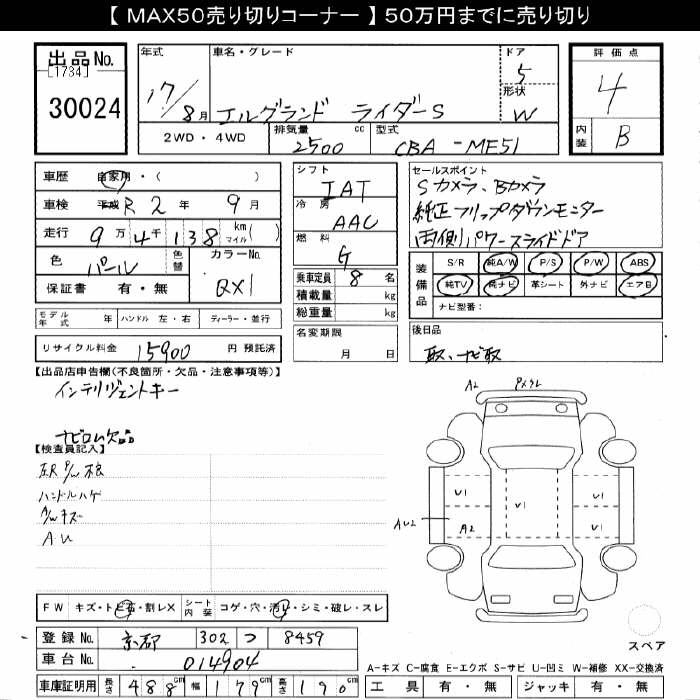 【 MAX50売り切りコーナー 】50万円までに売り切り
出品No.
[1734]
30024
年式
17/8月
車名・グレード
エルグランド ライダーS
ドア
5
形状
W
評価点
4
内装
B
2WD・4WD
排気量
2500 cc
型式
CBA-ME51
車歴
自家用・( )
車検
平成 R2年 9月
走行
9万4千138 km(マイル)
色
パール
色替
カラーNo.
QX1
保証書 有・無
モデル年式 年
ハンドル 左・右
ディーラー・並行
リサイクル料金 15900 円 預託済
シフト
IAT
冷房
AAC
燃料
G
乗車定員 8 名
積載量 kg
総重量 kg
名変期限
月 日
セールスポイント
Sカメラ、Bカメラ
純正フリップダウンモニター
両側パワースライドドア
装備品
S/R 純A/W P/S P/W ABS
純TV 純ナビ 革シート 外ナビ エアB
ナビ型番:
後日品
取、ナビ取
【出品店申告欄(不良箇所・欠品・注意事項等)】
インテリジェントキー
ナビロム欠品
【検査員記入】
左R P/W不良
ハンドルハゲ
A/Wキズ
AU
A2
U1
U1
U1
AU2
A2
U1
FW キズ・トビ石・割レX
シート内装 コゲ・穴・汚レ・シミ・破レ・スレ
登録No. 京都 302 つ 8459
車台No. 014904
車庫証明用 長さ 488cm 幅 179cm 高さ 190cm
スペア
A-キズ C-腐食 E-エクボ S-サビ U-凹ミ W-補修 XX-交換済
工具 有・無 ジャッキ 有・無